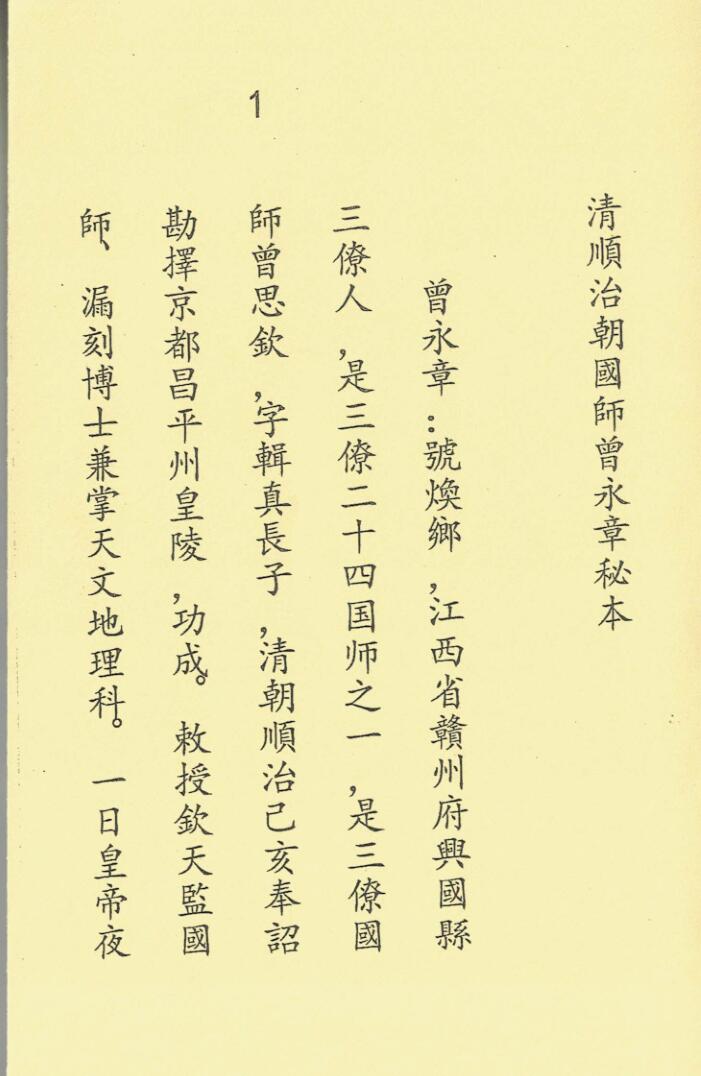 1
清順治朝國師曾永章秘本
曾永章：號煥鄉，江西省贛州府興國縣
三僚人，是三僚二十四国师之一，是三僚國
師曾思欽，字輯真長子，清朝順治己亥奉詔
勘擇京都昌平州皇陵，功成。敕授欽天監國
師、漏刻博士兼掌天文地理科。一日皇帝夜